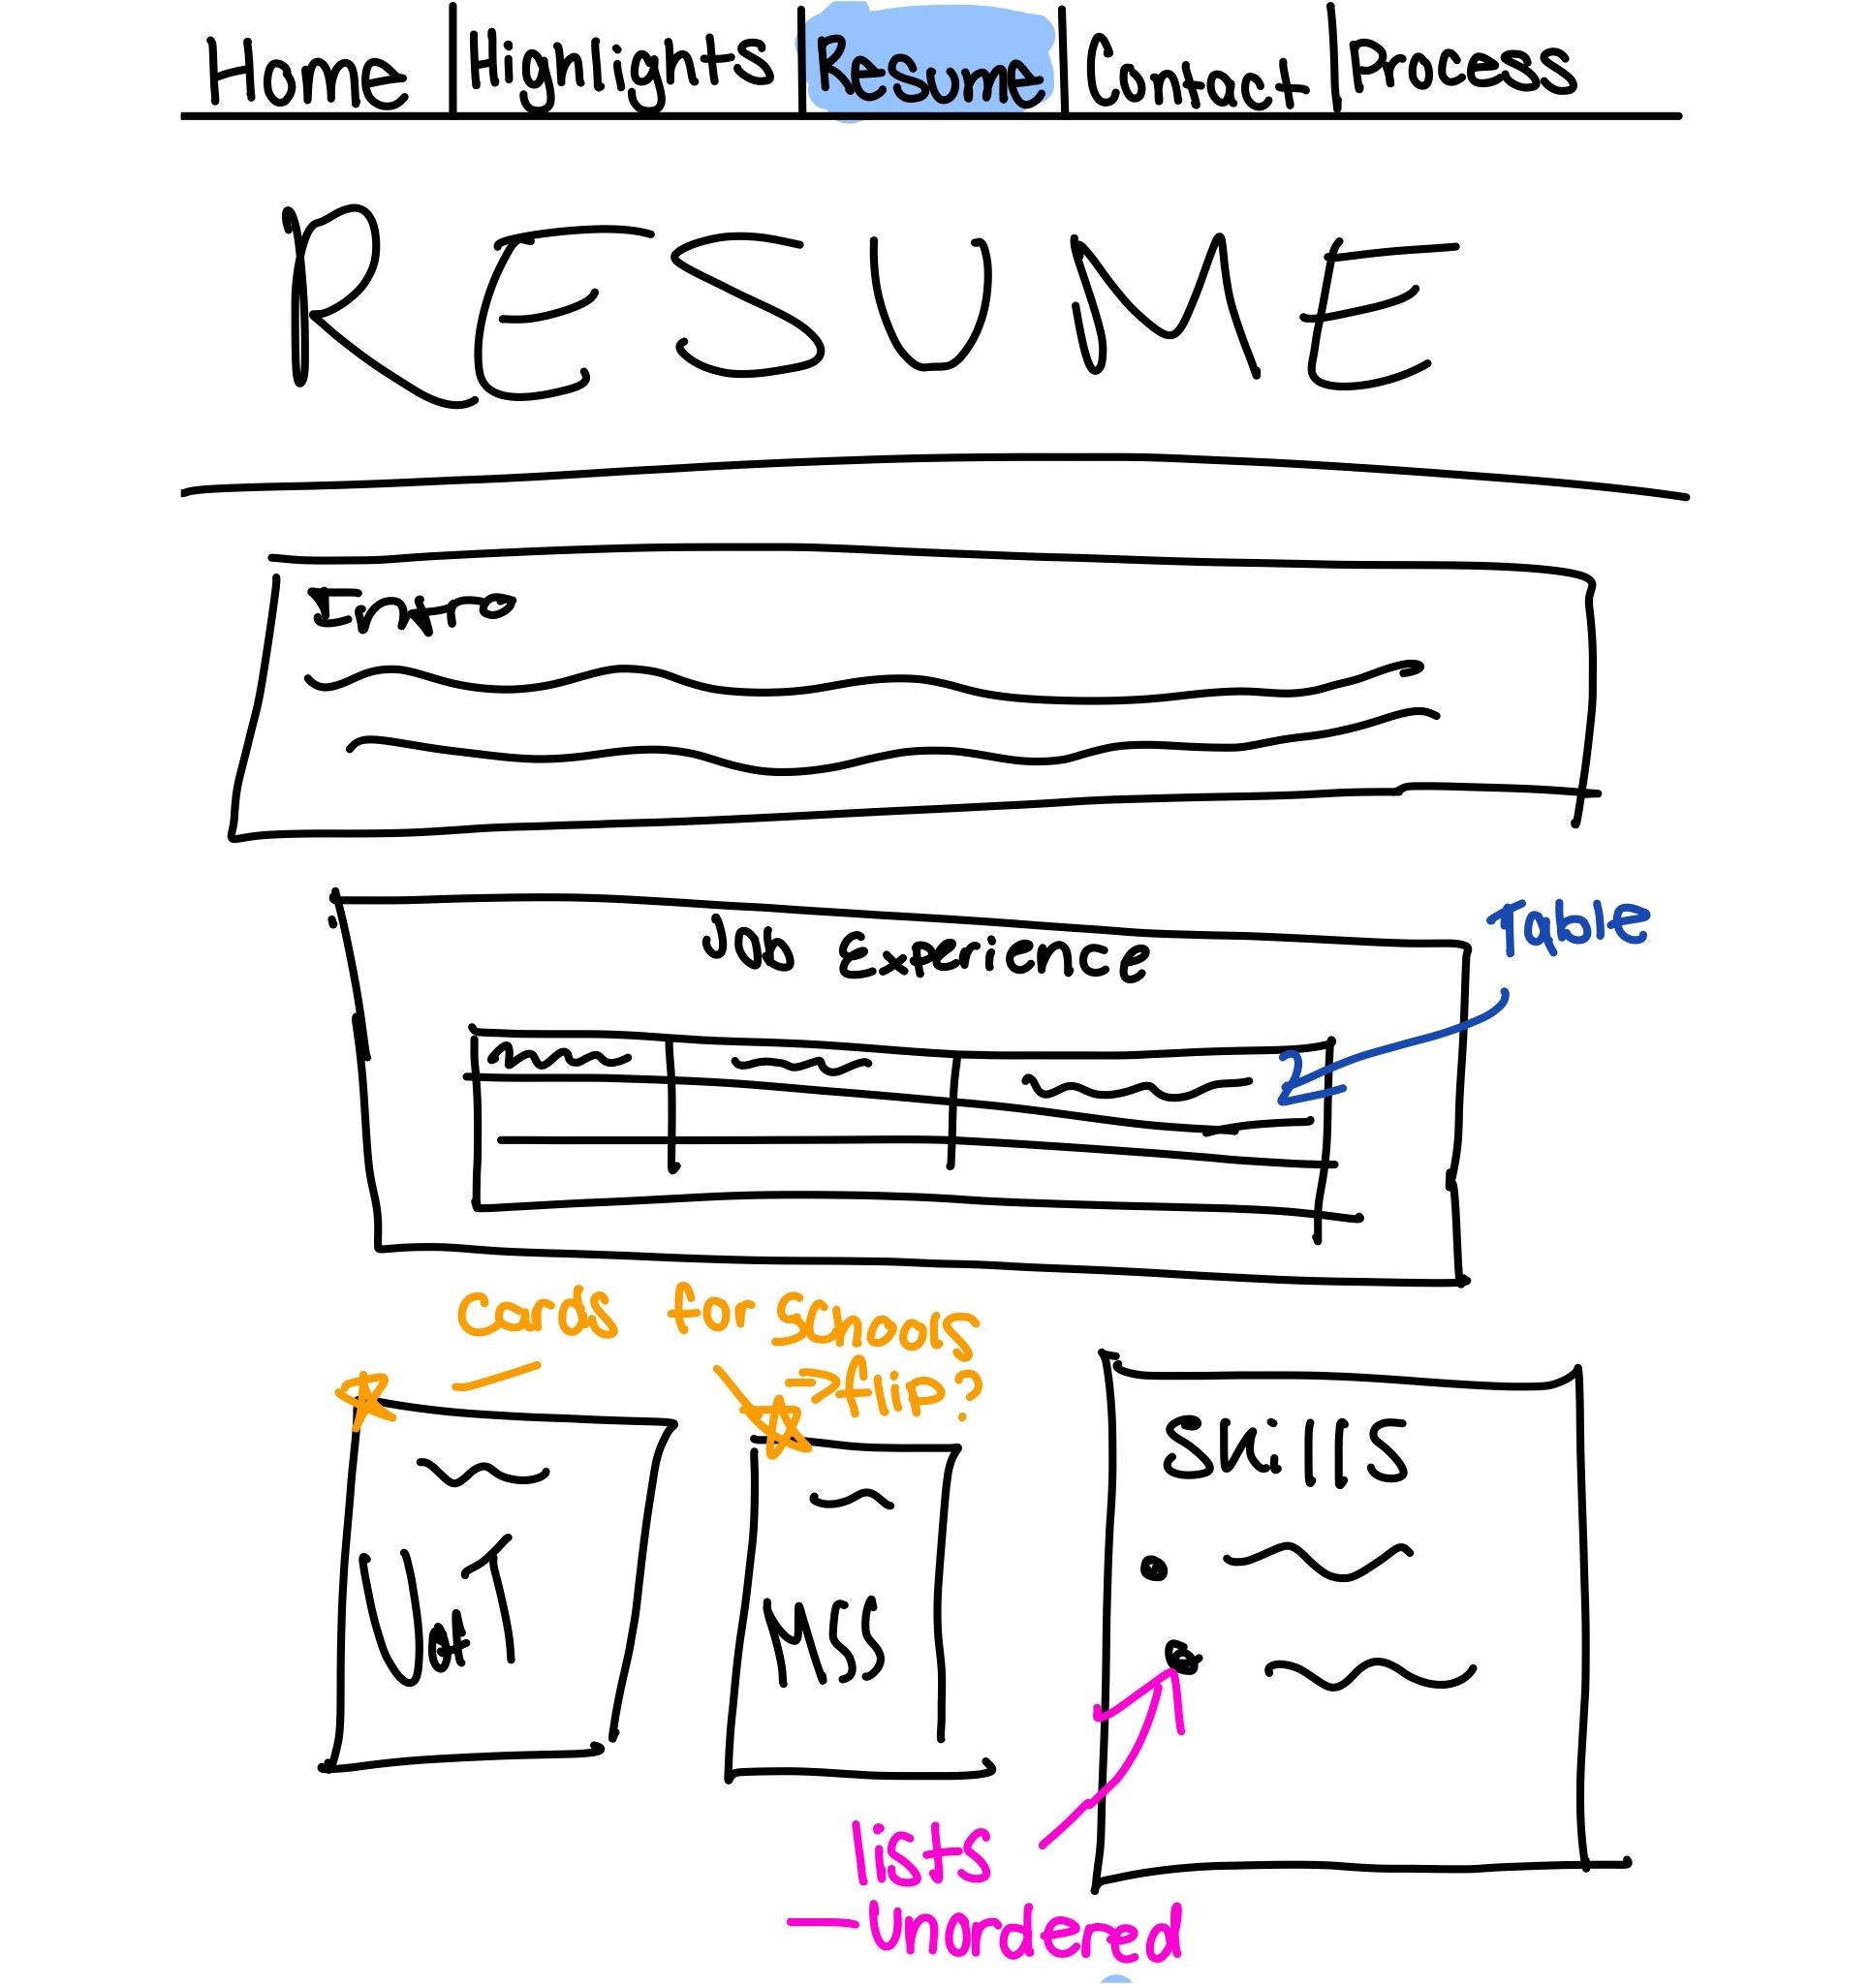 Home Highlights Resume Contact Process
RESUME
Intro
Job Experience
Table
cards for schools
flip?
UofT
NSS
Skills
lists
- Unordered